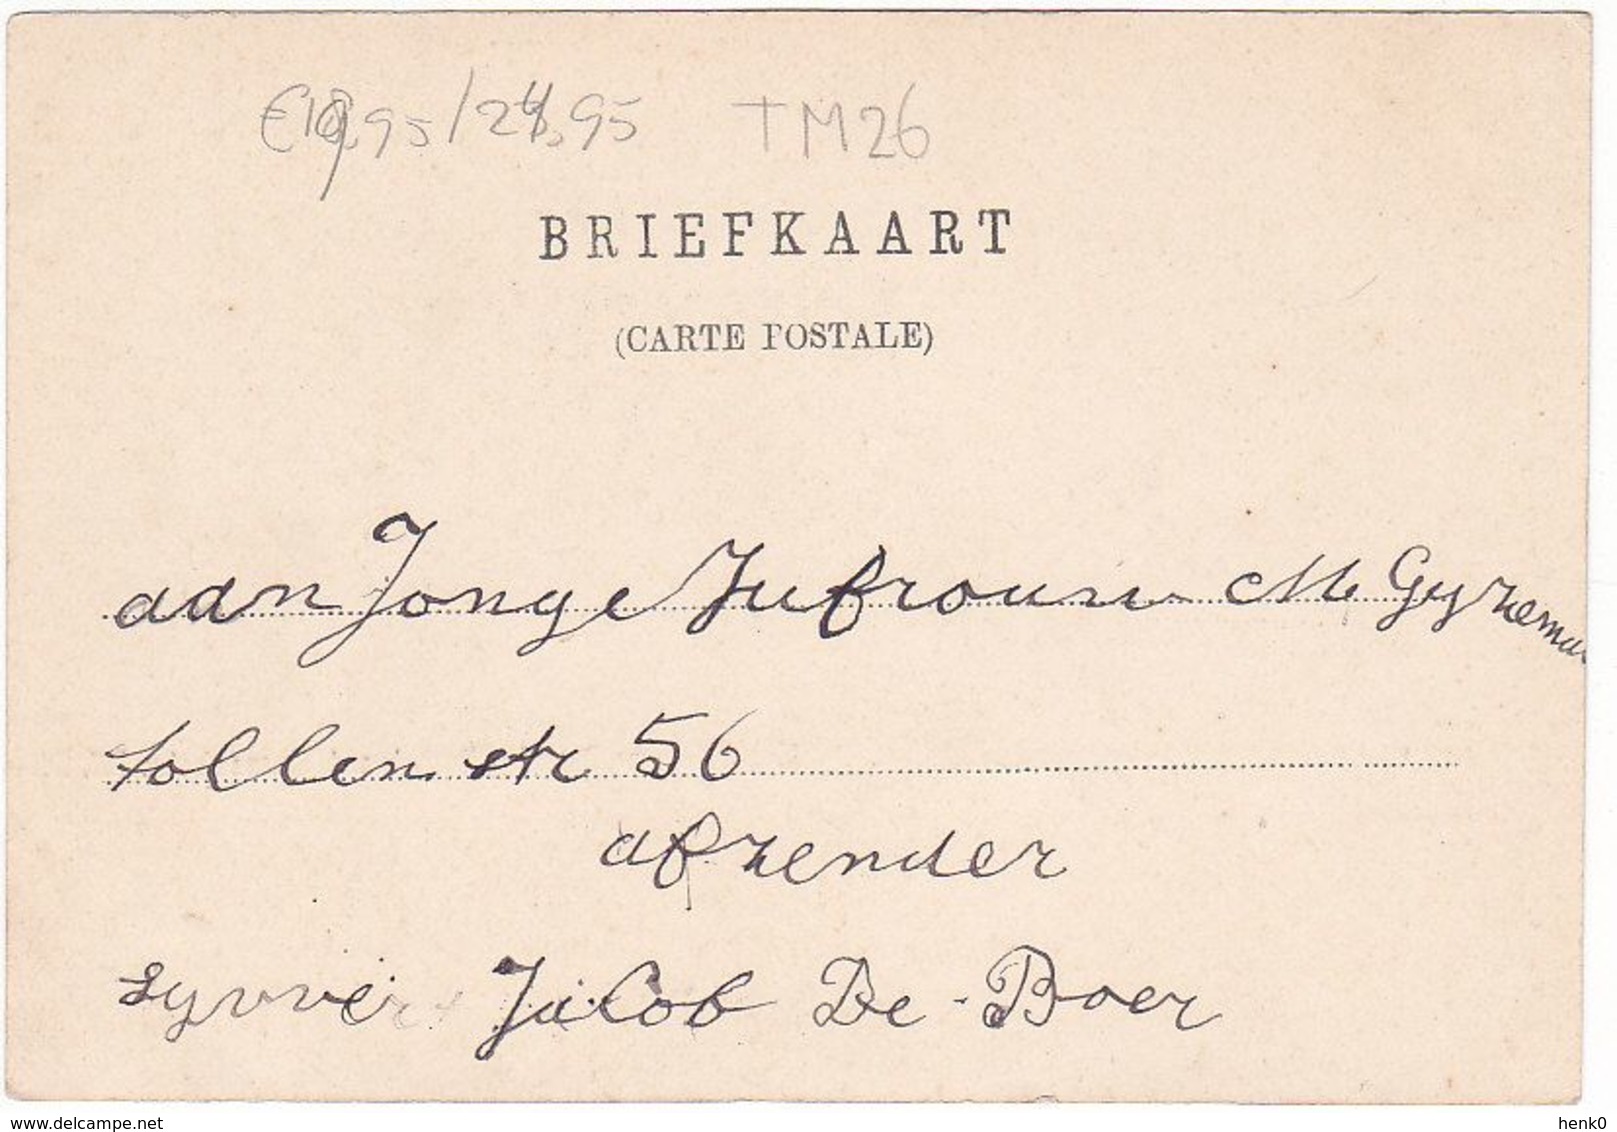 €19,95/24,95 TM26
BRIEFKAART
(CARTE POSTALE)
aan Jonge Jufrouw M
tollen str 56
afzender
Jacob De Boer
delcampe.net
henk0